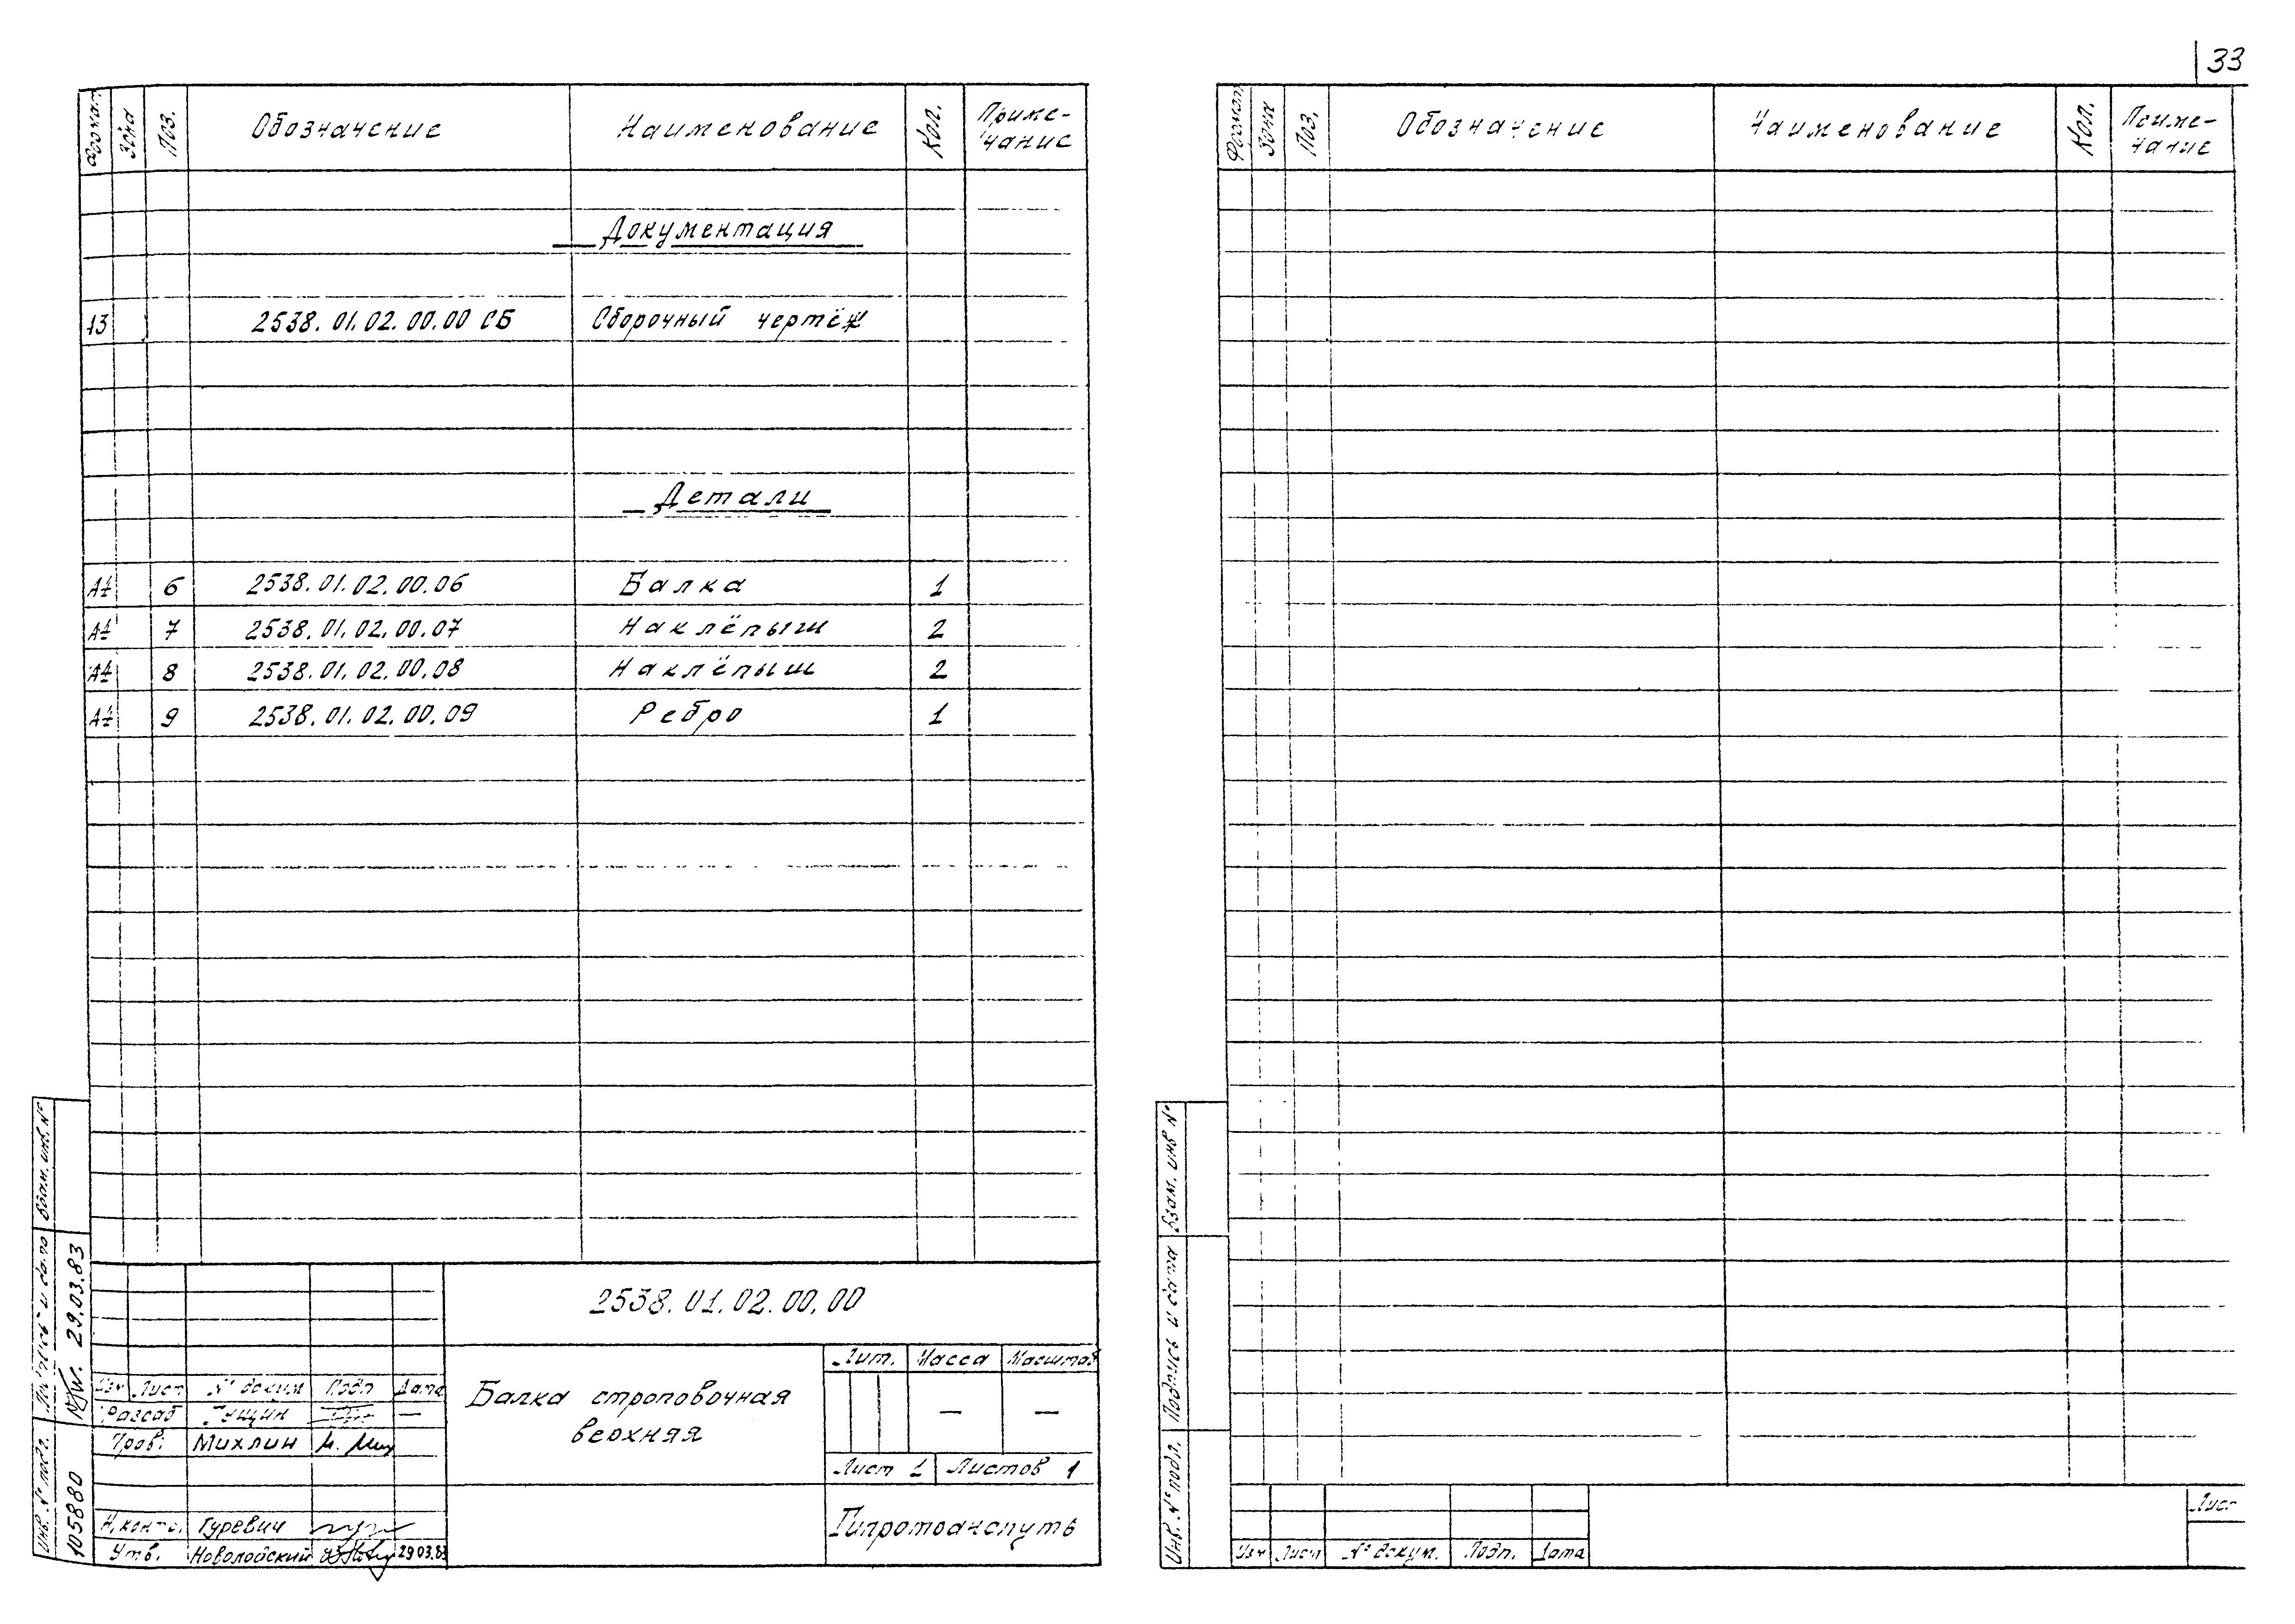 33
Формат Зона Поз. Обозначение Наименование Кол. Приме-
чание
Документация
2538.01.02.00.00 СБ Сборочный чертёж
Детали
А4 6 2538.01.02.00.06 Балка 1
А4 7 2538.01.02.00.07 Наклёпыш 2
А4 8 2538.01.02.00.08 Наклёпыш 2
А4 9 2538.01.02.00.09 Ребро 1
Взам. инв. №
Подпись и дата 29.03.83
Инв. № подл. 105880
2538.01.02.00.00
Изм Лист № докум Подп Дата
Разраб Гущин —
Пров. Михлин
Н. контр. Гуревич
Утв. Новолодский 29.03.83
Балка строповочная
верхняя
Лит. Масса Масштаб
— —
Лист 1 Листов 1
Гипротранспуть
Формат Зона Поз. Обозначение Наименование Кол. Приме-
чание
Взам. инв №
Подпись и дата
Инв. № подл.
Изм Лист № докум. Подп. Дата
Лист